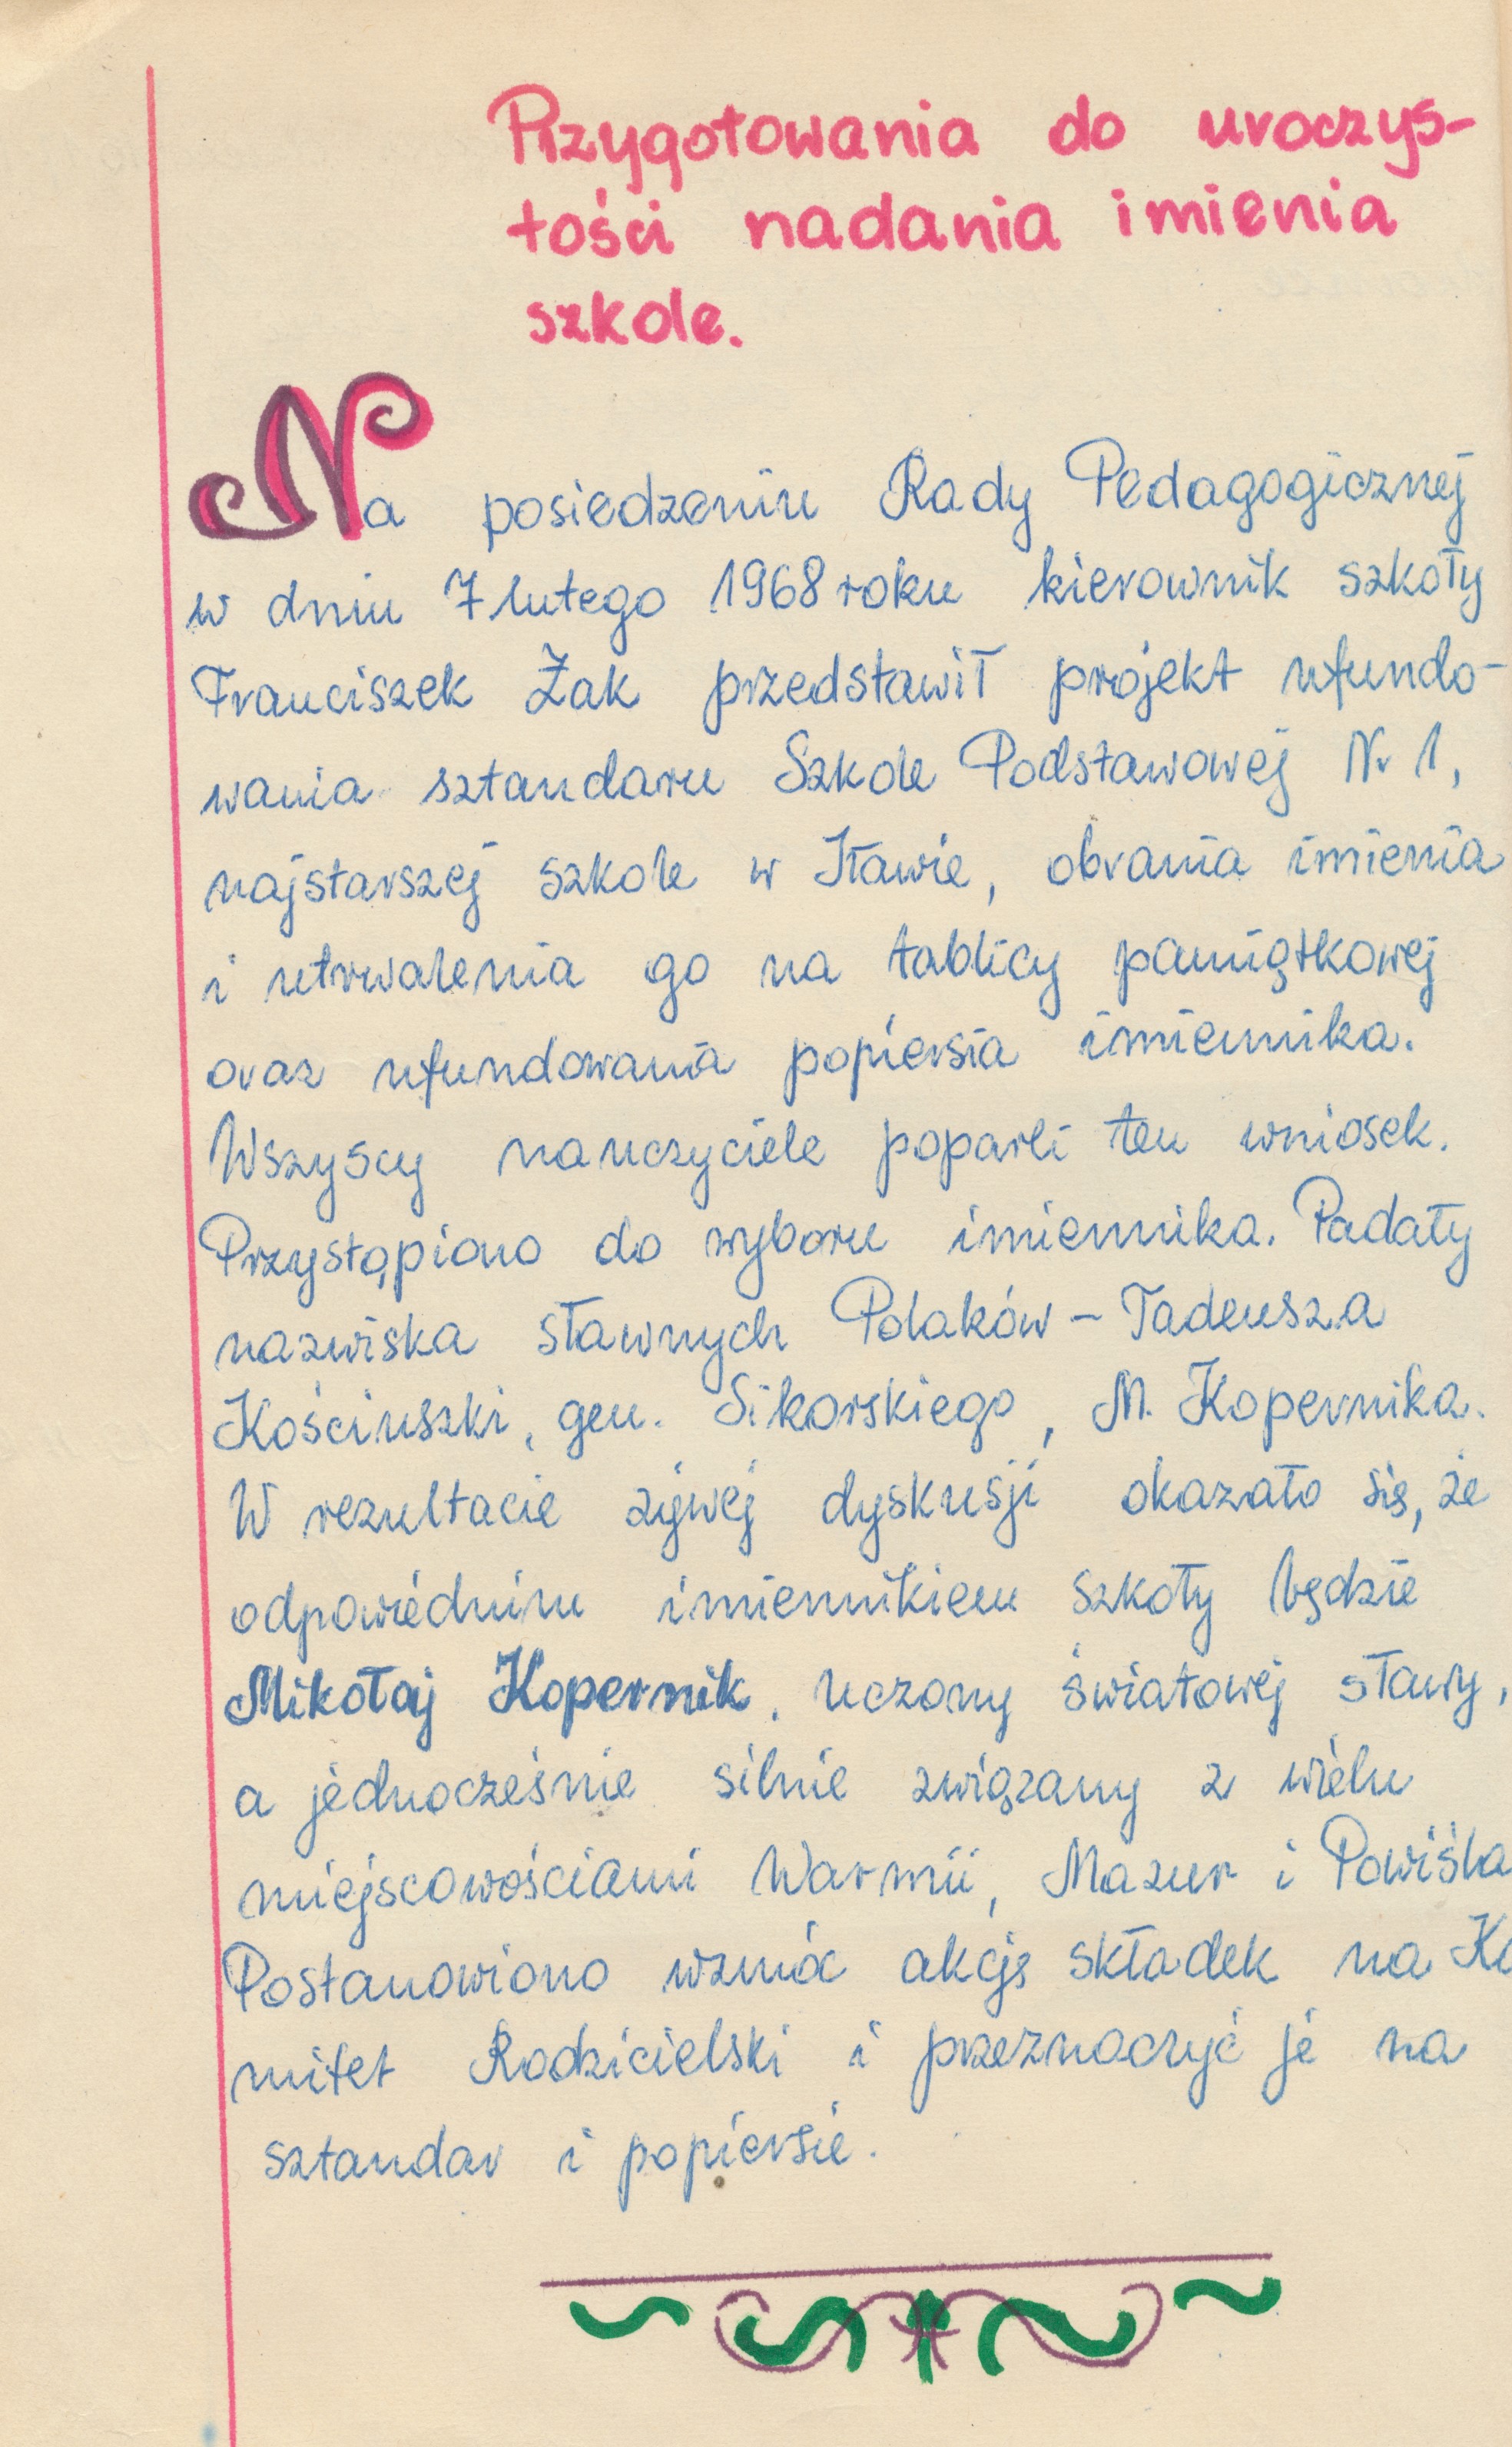 Przygotowania do uroczys-
tości nadania imienia
szkole.
Na posiedzeniu Rady Pedagogicznej
w dniu 7 lutego 1968 roku kierownik szkoły
Franciszek Żak przedstawił projekt ufundo-
wania sztandaru Szkole Podstawowej Nr 1,
najstarszej szkole w Iławie, obrania imienia
i utrwalenia go na tablicy pamiątkowej
oraz ufundowania popiersia imiennika.
Wszyscy nauczyciele poparli ten wniosek.
Przystąpiono do wyboru imiennika. Padały
nazwiska sławnych Polaków - Tadeusza
Kościuszki, gen. Sikorskiego, M. Kopernika.
W rezultacie żywej dyskusji okazało się, że
odpowiednim imiennikiem szkoły będzie
Mikołaj Kopernik, uczony światowej sławy,
a jednocześnie silnie związany z wielu
miejscowościami Warmii, Mazur i Powiśla
Postanowiono wzmóc akcję składek na Ko
mitet Rodzicielski i przeznaczyć je na
sztandar i popiersie.